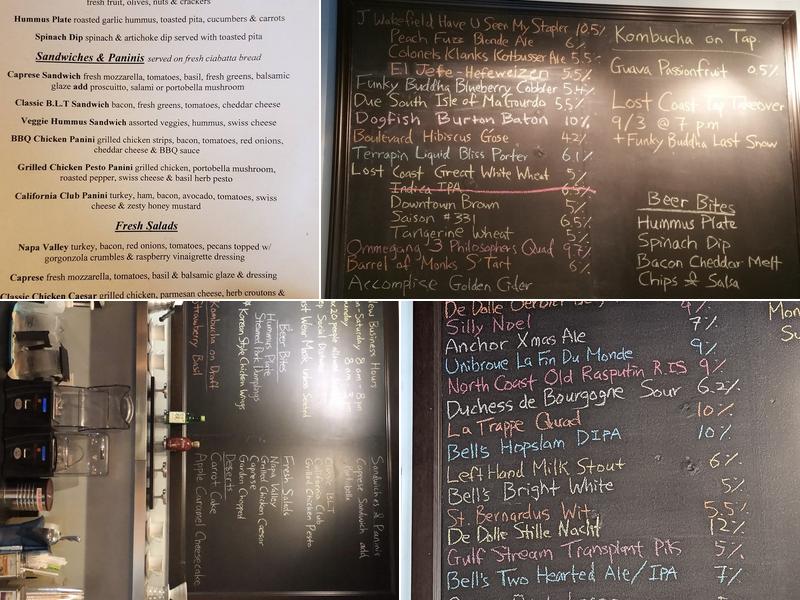 fresh fruit, olives, nuts & crackers
Hummus Plate roasted garlic hummus, toasted pita, cucumbers & carrots
Spinach Dip spinach & artichoke dip served with toasted pita
Sandwiches & Paninis served on fresh ciabatta bread
Caprese Sandwich fresh mozzarella, tomatoes, basil, fresh greens, balsamic
glaze add proscuitto, salami or portabella mushroom
Classic B.L.T Sandwich bacon, fresh greens, tomatoes, cheddar cheese
Veggie Hummus Sandwich assorted veggies, hummus, swiss cheese
BBQ Chicken Panini grilled chicken strips, bacon, tomatoes, red onions,
cheddar cheese & BBQ sauce
Grilled Chicken Pesto Panini grilled chicken, portabella mushroom,
roasted pepper, swiss cheese & basil herb pesto
California Club Panini turkey, ham, bacon, avocado, tomatoes, swiss
cheese & zesty honey mustard
Fresh Salads
Napa Valley turkey, bacon, red onions, tomatoes, pecans topped w/
gorgonzola crumbles & raspberry vinaigrette dressing
Caprese fresh mozzarella, tomatoes, basil & balsamic glaze & dressing
Classic Chicken Caesar grilled chicken, parmesan cheese, herb croutons &
J Wakefield Have U Seen My Stapler 10.5%
Peach Fuzz Blonde Ale 6%
Colonels Klanks Kottbusser Ale 5.5%
El Jefe-Hefeweizen 5.5%
Funky Buddha Blueberry Cobbler 5.4%
Due South Isle of Ma'Gourdo 5.5%
Dogfish Burton Baton 10%
Boulevard Hibiscus Gose 4.2%
Terrapin Liquid Bliss Porter 6.1%
Lost Coast Great White Wheat 5%
Indica IPA 6.5%
Downtown Brown 5%
Saison #331 6.5%
Tangerine Wheat 5%
Ommegang 3 Philosophers Quad 9.7%
Barrel of Monks S'Tart 6%
Accomplise Golden Cider
Kombucha on Tap
Guava Passionfruit 0.5%
Lost Coast Tap Takeover
9/3 @ 7 pm
+ Funky Buddha Last Snow
Beer Bites
Hummus Plate
Spinach Dip
Bacon Cheddar Melt
Chips & Salsa
New Business Hours
8am - 8pm
Beer Bites
Hummus Plate
Steamed Pork Dumplings
Korean Style Chicken Wings
Kombucha on Draft
Strawberry Basil
Sandwiches & Paninis
Caprese Sandwich add
Classic BLT
California Club
Grilled Chicken Pesto
Fresh Salads
Napa Valley
Grilled Chicken Caesar
Caprese
Garden Chopped
Desserts
Carrot Cake
Apple Caramel Cheesecake
De Dolle
Silly Noel 7%
Anchor Xmas Ale
Unibroue La Fin Du Monde 9%
North Coast Old Rasputin R.I.S 9%
Duchess de Bourgogne Sour 6.2%
La Trappe Quad 10%
Bell's Hopslam DIPA 10%
Left Hand Milk Stout 6%
Bell's Bright White 5%
St. Bernardus Wit 5.5%
De Dolle Stille Nacht 12%
Gulf Stream Transplant Pils 5%
Bell's Two Hearted Ale/IPA 7%
Mon
Su